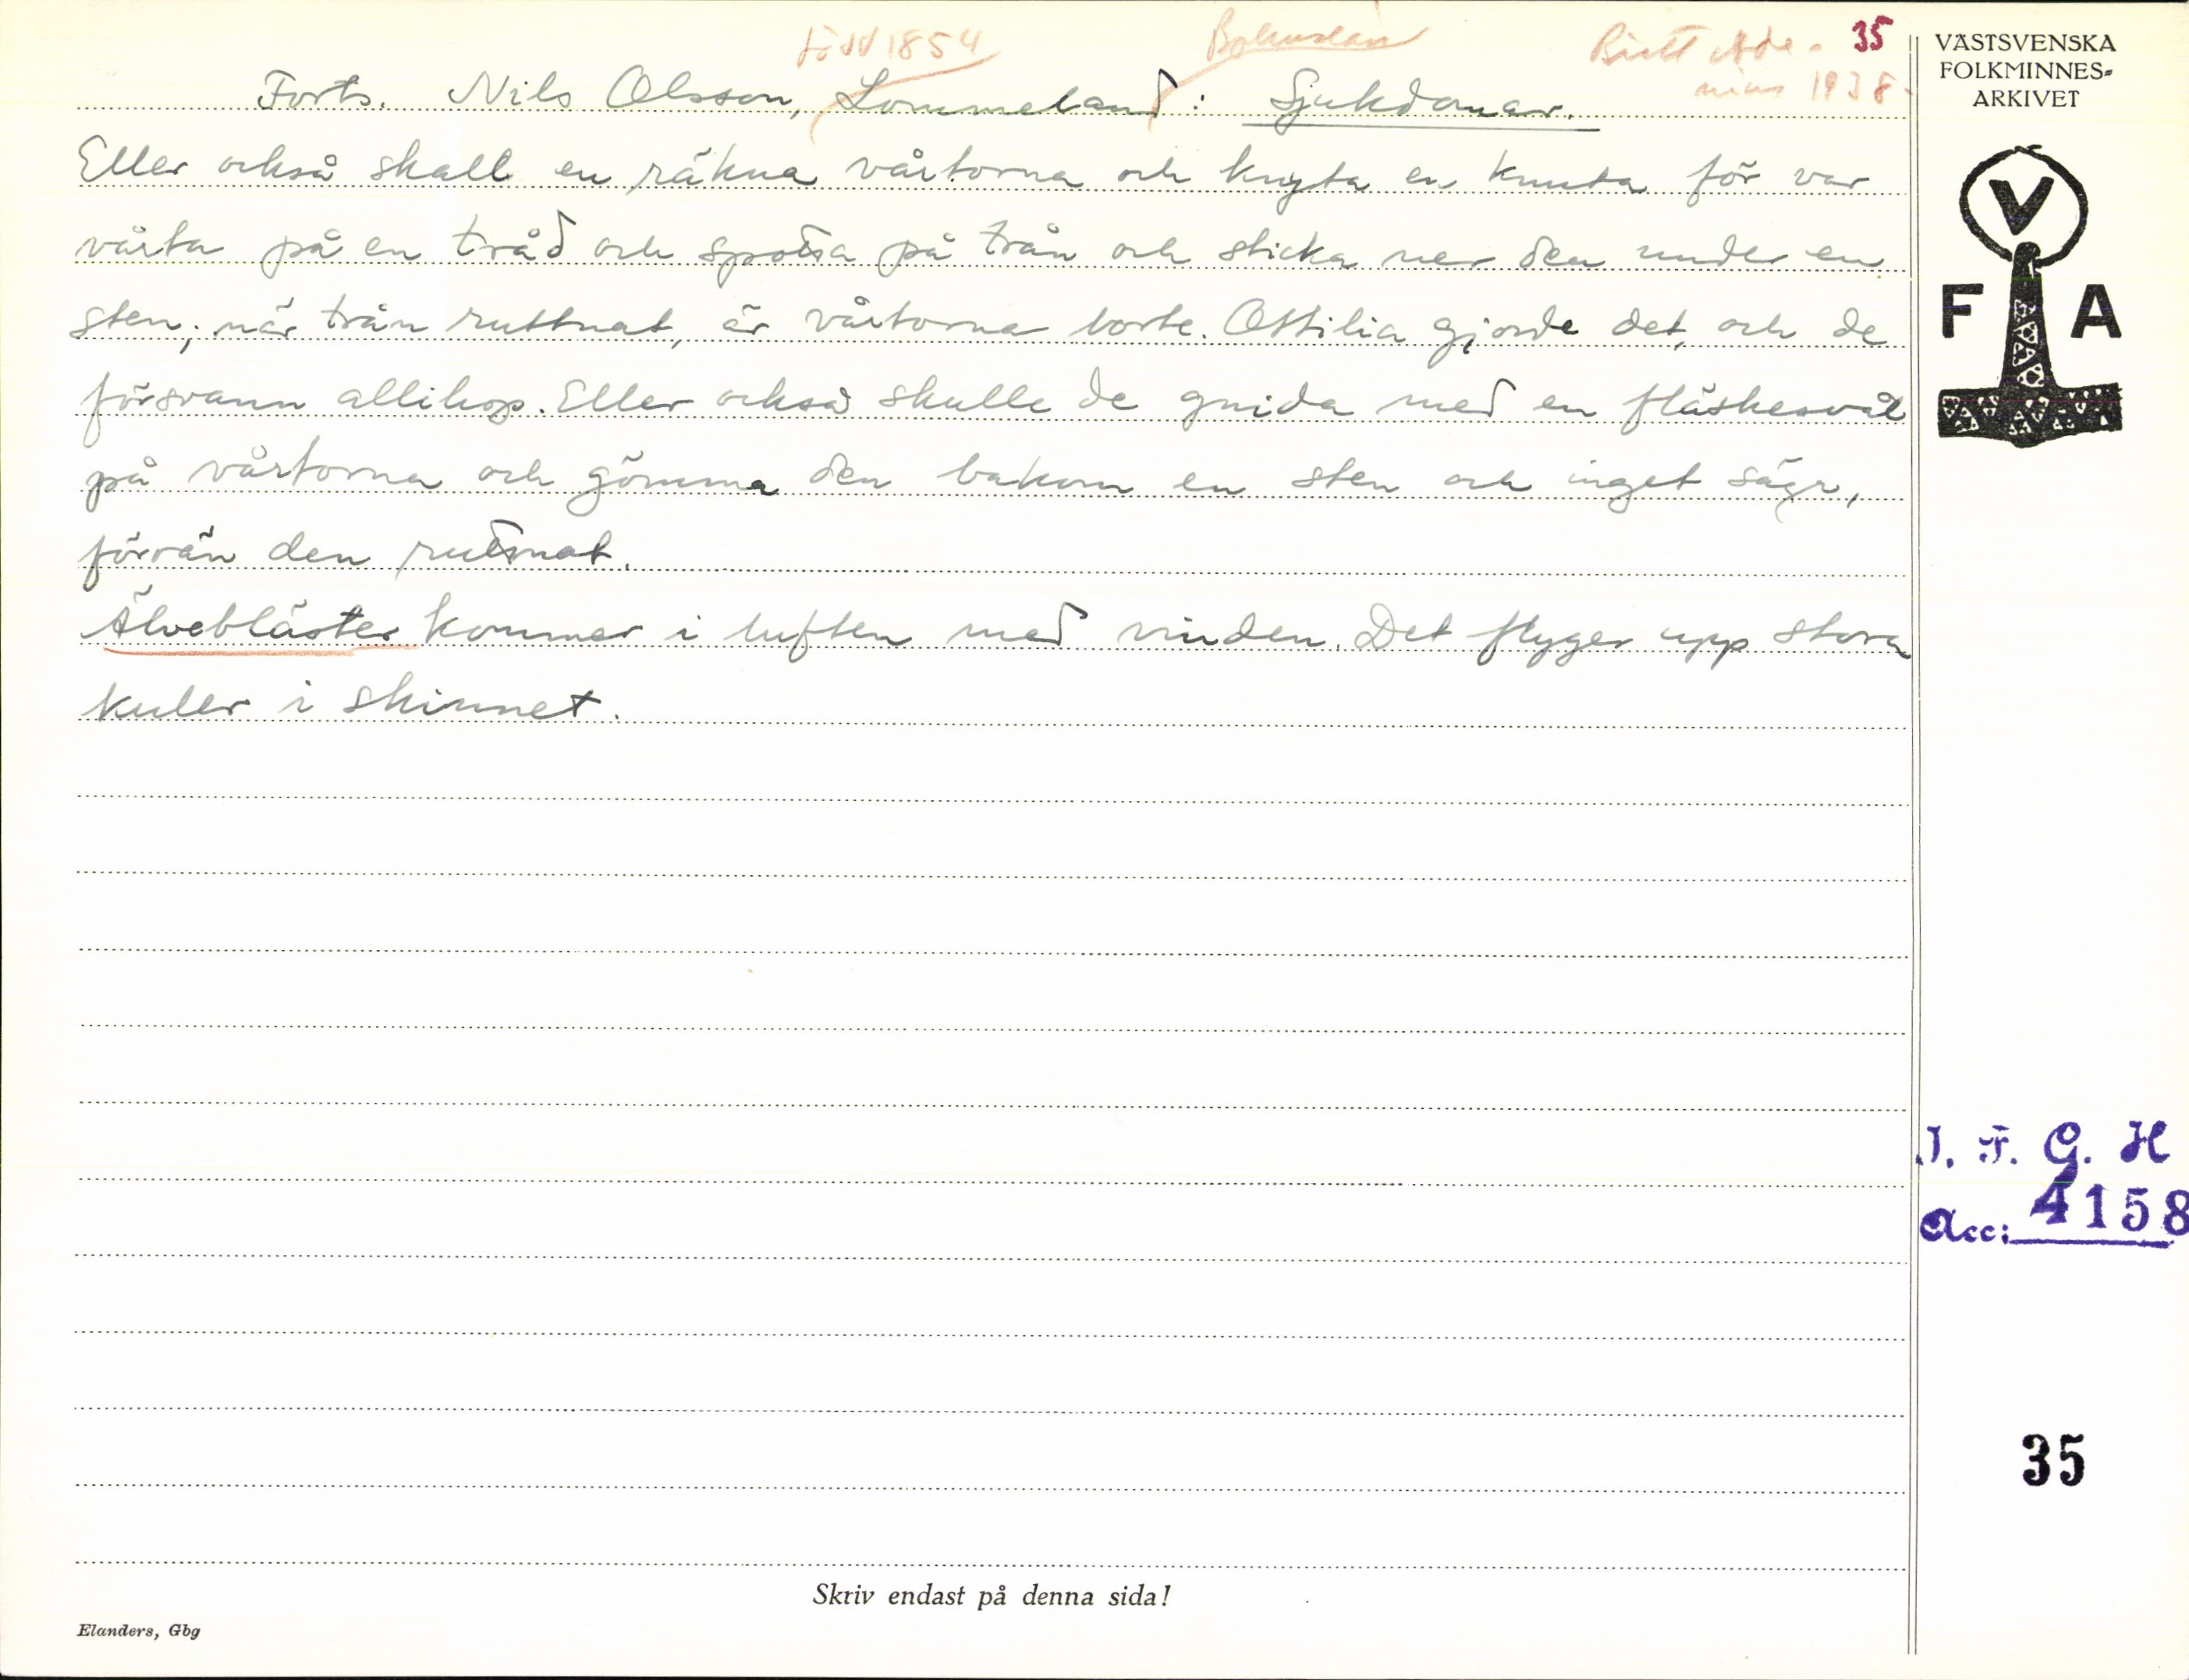 född 1854 Bohuslän Britt Ade- 35
nius 1938.
Forts. Nils Olsson, Lommeland: Sjukdomar.
Eller också skall en räkna vårtorna och knyta en knuta för var
vårta på en tråd och spotta på trån och sticka ner den under en
sten; när trån ruttnat, är vårtorna borte. Ottilia gjorde det, och de
försvann allihop. Eller också skulle de gnida med en fläskesvål
på vårtorna och gömma den bakom en sten och inget säga,
förrän den ruttnat.
Älvebläster kommer i luften med vinden. Det flyger upp stora
kuler i skinnet.
VÄSTSVENSKA
FOLKMINNES-
ARKIVET
V
F A
I. F. G. H
Acc: 4158
35
Skriv endast på denna sida!
Elanders, Gbg